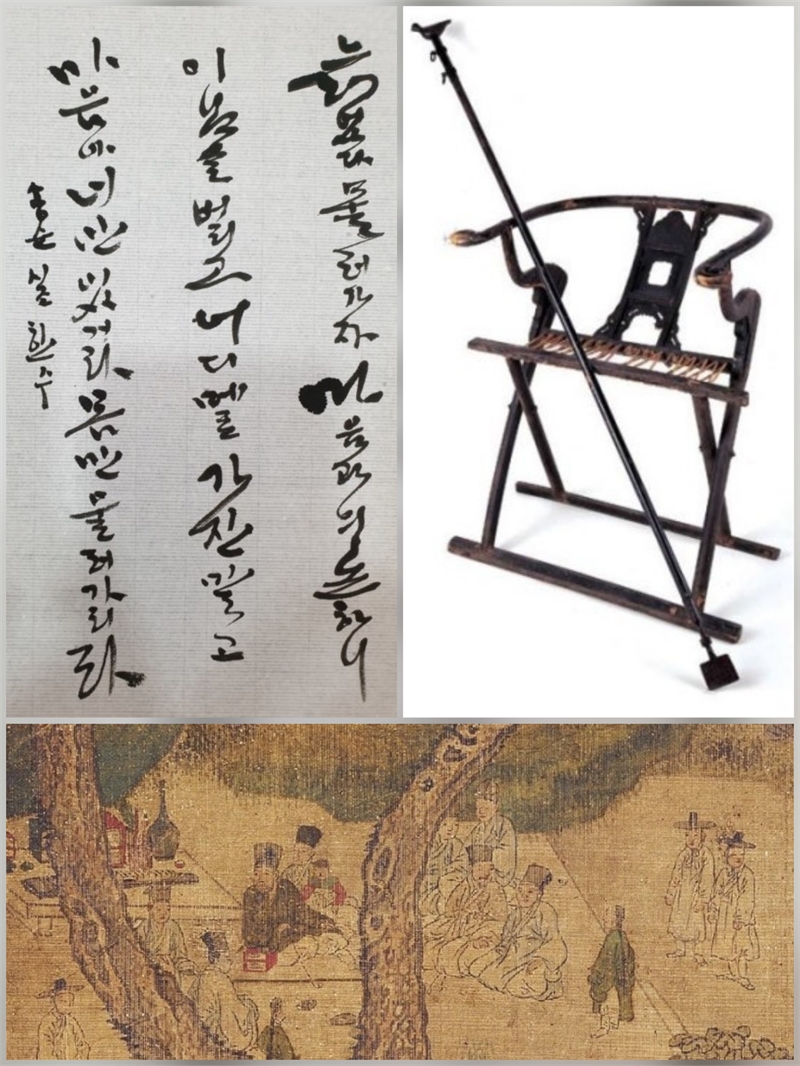 늙었다 물러가자 마음과 의논하니
이 님을 버리고 어디멜 가잔 말고
마음아 너만 있거라 몸만 물러가리라
송순 한수